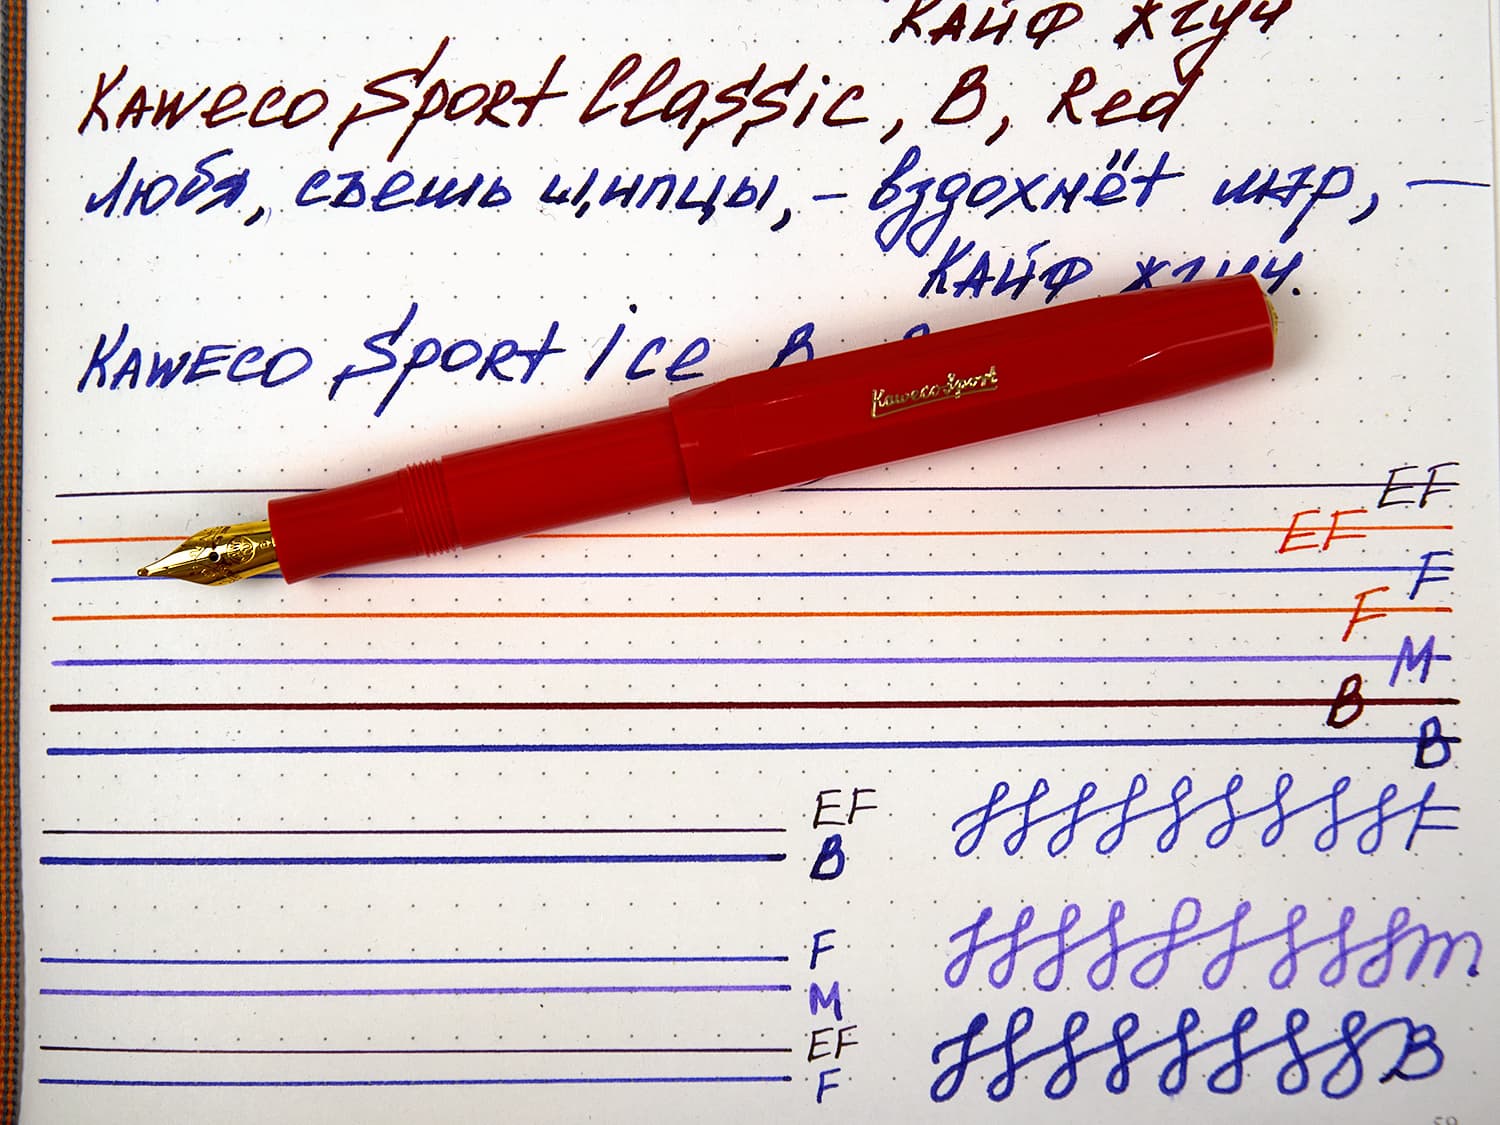 Кайф жгуч
Kaweco Sport Classic, B, Red
Любя, съешь щипцы, – вздохнёт мэр, –
Кайф жгуч.
Kaweco Sport ice B
Kaweco Sport
EF
EF
F
F
M
B
B
EF
B
F
F
M
m
EF
F
B
59